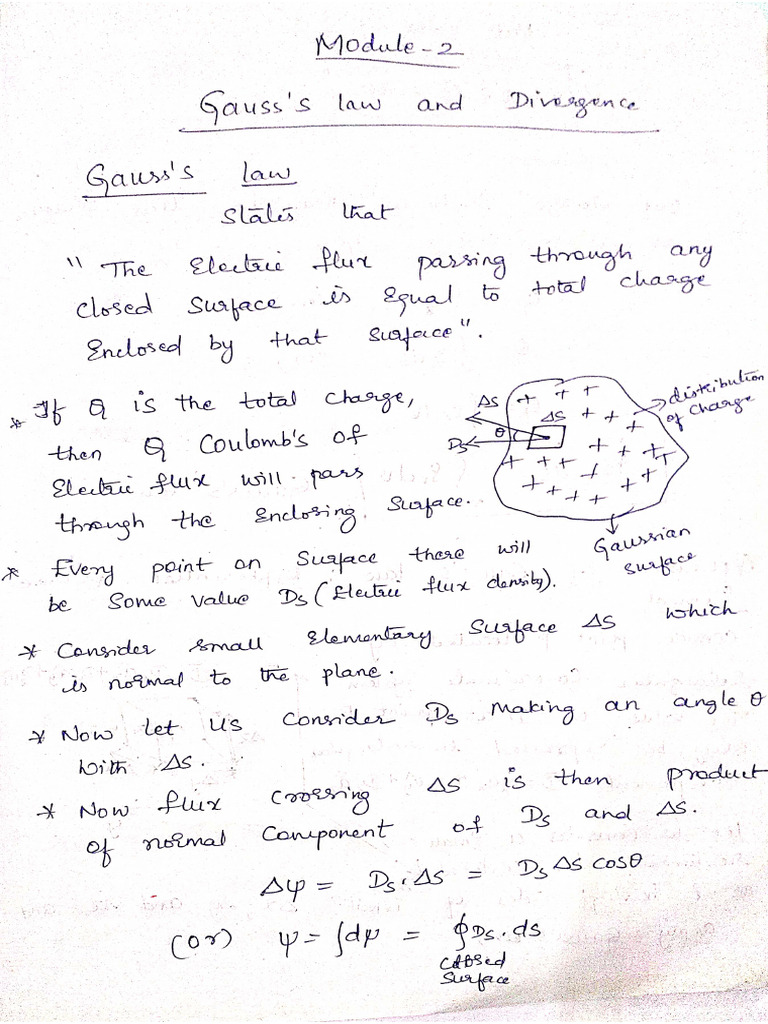 Module-2
Gauss's law and Divergence
Gauss's law
States that
"The Electric flux passing through any
closed surface is equal to total charge
Enclosed by that surface".
* If Q is the total charge,
then Q Coulomb's of
Electric flux will pass
through the enclosing surface.
ΔS
ΔS
θ
Ds
distribution
of charge
Gaussian
surface
* Every point on surface there will
be some value Ds (Electric flux density).
* Consider small elementary surface ΔS which
is normal to the plane.
* Now let us consider Ds making an angle θ
with ΔS.
* Now flux crossing ΔS is then product
of normal component of Ds and ΔS.
Δψ = Ds.ΔS = Ds ΔS cosθ
(or) ψ = ∫dψ = ∮Ds.ds
closed
surface